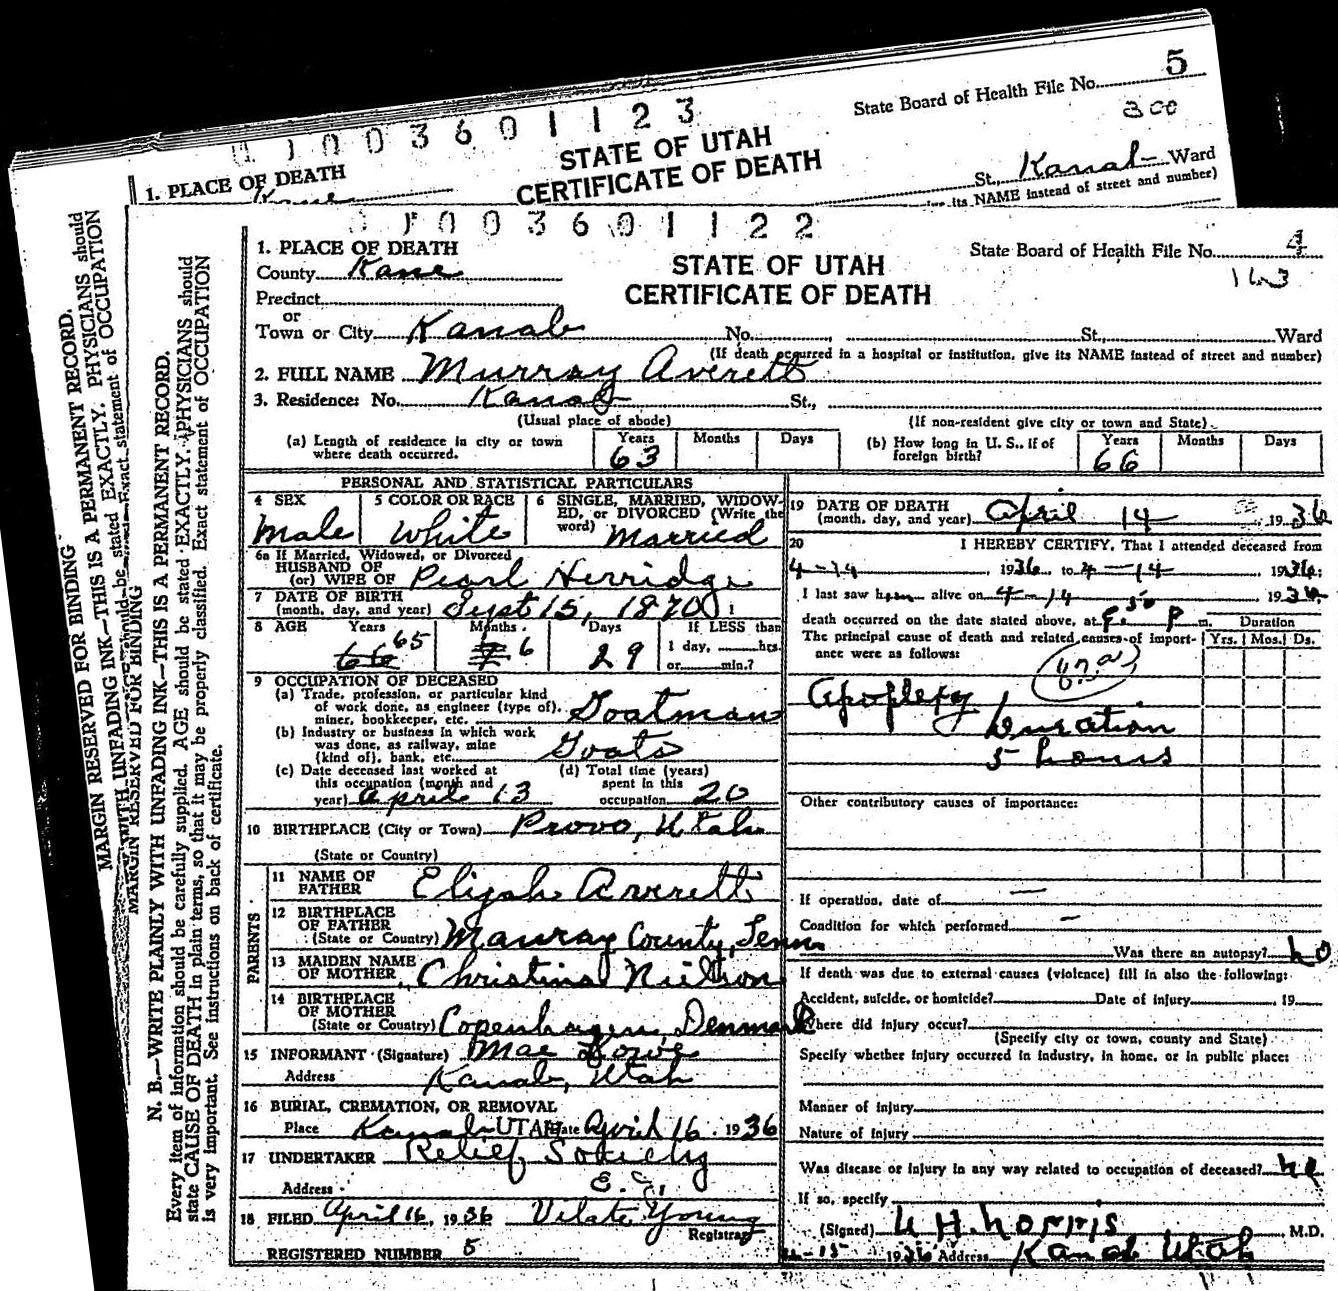 State Board of Health File No. 5
300
003601123
STATE OF UTAH
CERTIFICATE OF DEATH
1. PLACE OF DEATH
Kane
St., Kanab Ward
its NAME instead of street and number)
MARGIN RESERVED FOR BINDING
WITH UNFADING INK—THIS IS A PERMANENT RECORD.
should be stated EXACTLY. PHYSICIANS should
Exact statement of OCCUPATION
003601122
1. PLACE OF DEATH
State Board of Health File No. 4
163
STATE OF UTAH
CERTIFICATE OF DEATH
County Kane
Precinct
or
Town or City Kanab No. , St., Ward
(If death occurred in a hospital or institution, give its NAME instead of street and number)
2. FULL NAME Murray Averett
3. Residence: No. Kanab St.,
(Usual place of abode) (If non-resident give city or town and State)
(a) Length of residence in city or town where death occurred. Years 63 Months Days
(b) How long in U. S., if of foreign birth? Years 66 Months Days
MARGIN RESERVED FOR BINDING
N. B.—WRITE PLAINLY WITH UNFADING INK—THIS IS A PERMANENT RECORD.
Every item of information should be carefully supplied. AGE should be stated EXACTLY. PHYSICIANS should
state CAUSE OF DEATH in plain terms, so that it may be properly classified. Exact statement of OCCUPATION
is very important. See instructions on back of certificate.
PERSONAL AND STATISTICAL PARTICULARS
4 SEX Male
5 COLOR OR RACE White
6 SINGLE, MARRIED, WIDOWED, or DIVORCED (Write the word) Married
6a If Married, Widowed, or Divorced
HUSBAND OF
(or) WIFE OF Pearl Herridge
7 DATE OF BIRTH
(month, day, and year) Sept 15, 1870
8 AGE Years 66 65 Months 7 6 Days 29 If LESS than 1 day, hrs. or min.?
9 OCCUPATION OF DECEASED
(a) Trade, profession, or particular kind
of work done, as engineer (type of),
miner, bookkeeper, etc. Goatman
(b) Industry or business in which work
was done, as railway, mine
(kind of), bank, etc. Goats
(c) Date deceased last worked at
this occupation (month and
year) April 13
(d) Total time (years)
spent in this
occupation 20
10 BIRTHPLACE (City or Town) Provo, Utah
(State or Country)
PARENTS
11 NAME OF
FATHER Elijah Averett
12 BIRTHPLACE
OF FATHER
(State or Country) Mauray County, Tenn
13 MAIDEN NAME
OF MOTHER Christina Nielson
14 BIRTHPLACE
OF MOTHER
(State or Country) Copenhagen, Denmark
15 INFORMANT (Signature) Mae
Address Kanab, Utah
16 BURIAL, CREMATION, OR REMOVAL
Place Kanab UTAH Date April 16, 1936
17 UNDERTAKER Relief Society
Address
18 FILED April 16, 1936 Vilate Young
Registrar
REGISTERED NUMBER 5
19 DATE OF DEATH
(month, day, and year) April 14 1936
20 I HEREBY CERTIFY, That I attended deceased from
4-14, 1936, to 4-14 1936;
I last saw him alive on 4-14 1936,
death occurred on the date stated above, at 50 P. m. Duration
The principal cause of death and related causes of importance were as follows: Yrs. Mos. Ds.
Apoplexy
Duration
5 hours
Other contributory causes of importance:
If operation, date of —
Condition for which performed —
Was there an autopsy? no
If death was due to external causes (violence) fill in also the following:
Accident, suicide, or homicide? Date of injury , 19
Where did injury occur?
(Specify city or town, county and State)
Specify whether injury occurred in industry, in home, or in public place:
Manner of injury
Nature of injury
Was disease or injury in any way related to occupation of deceased? no
If so, specify
(Signed) H. Norris, M.D.
4-15 1936 Address Kanab Utah